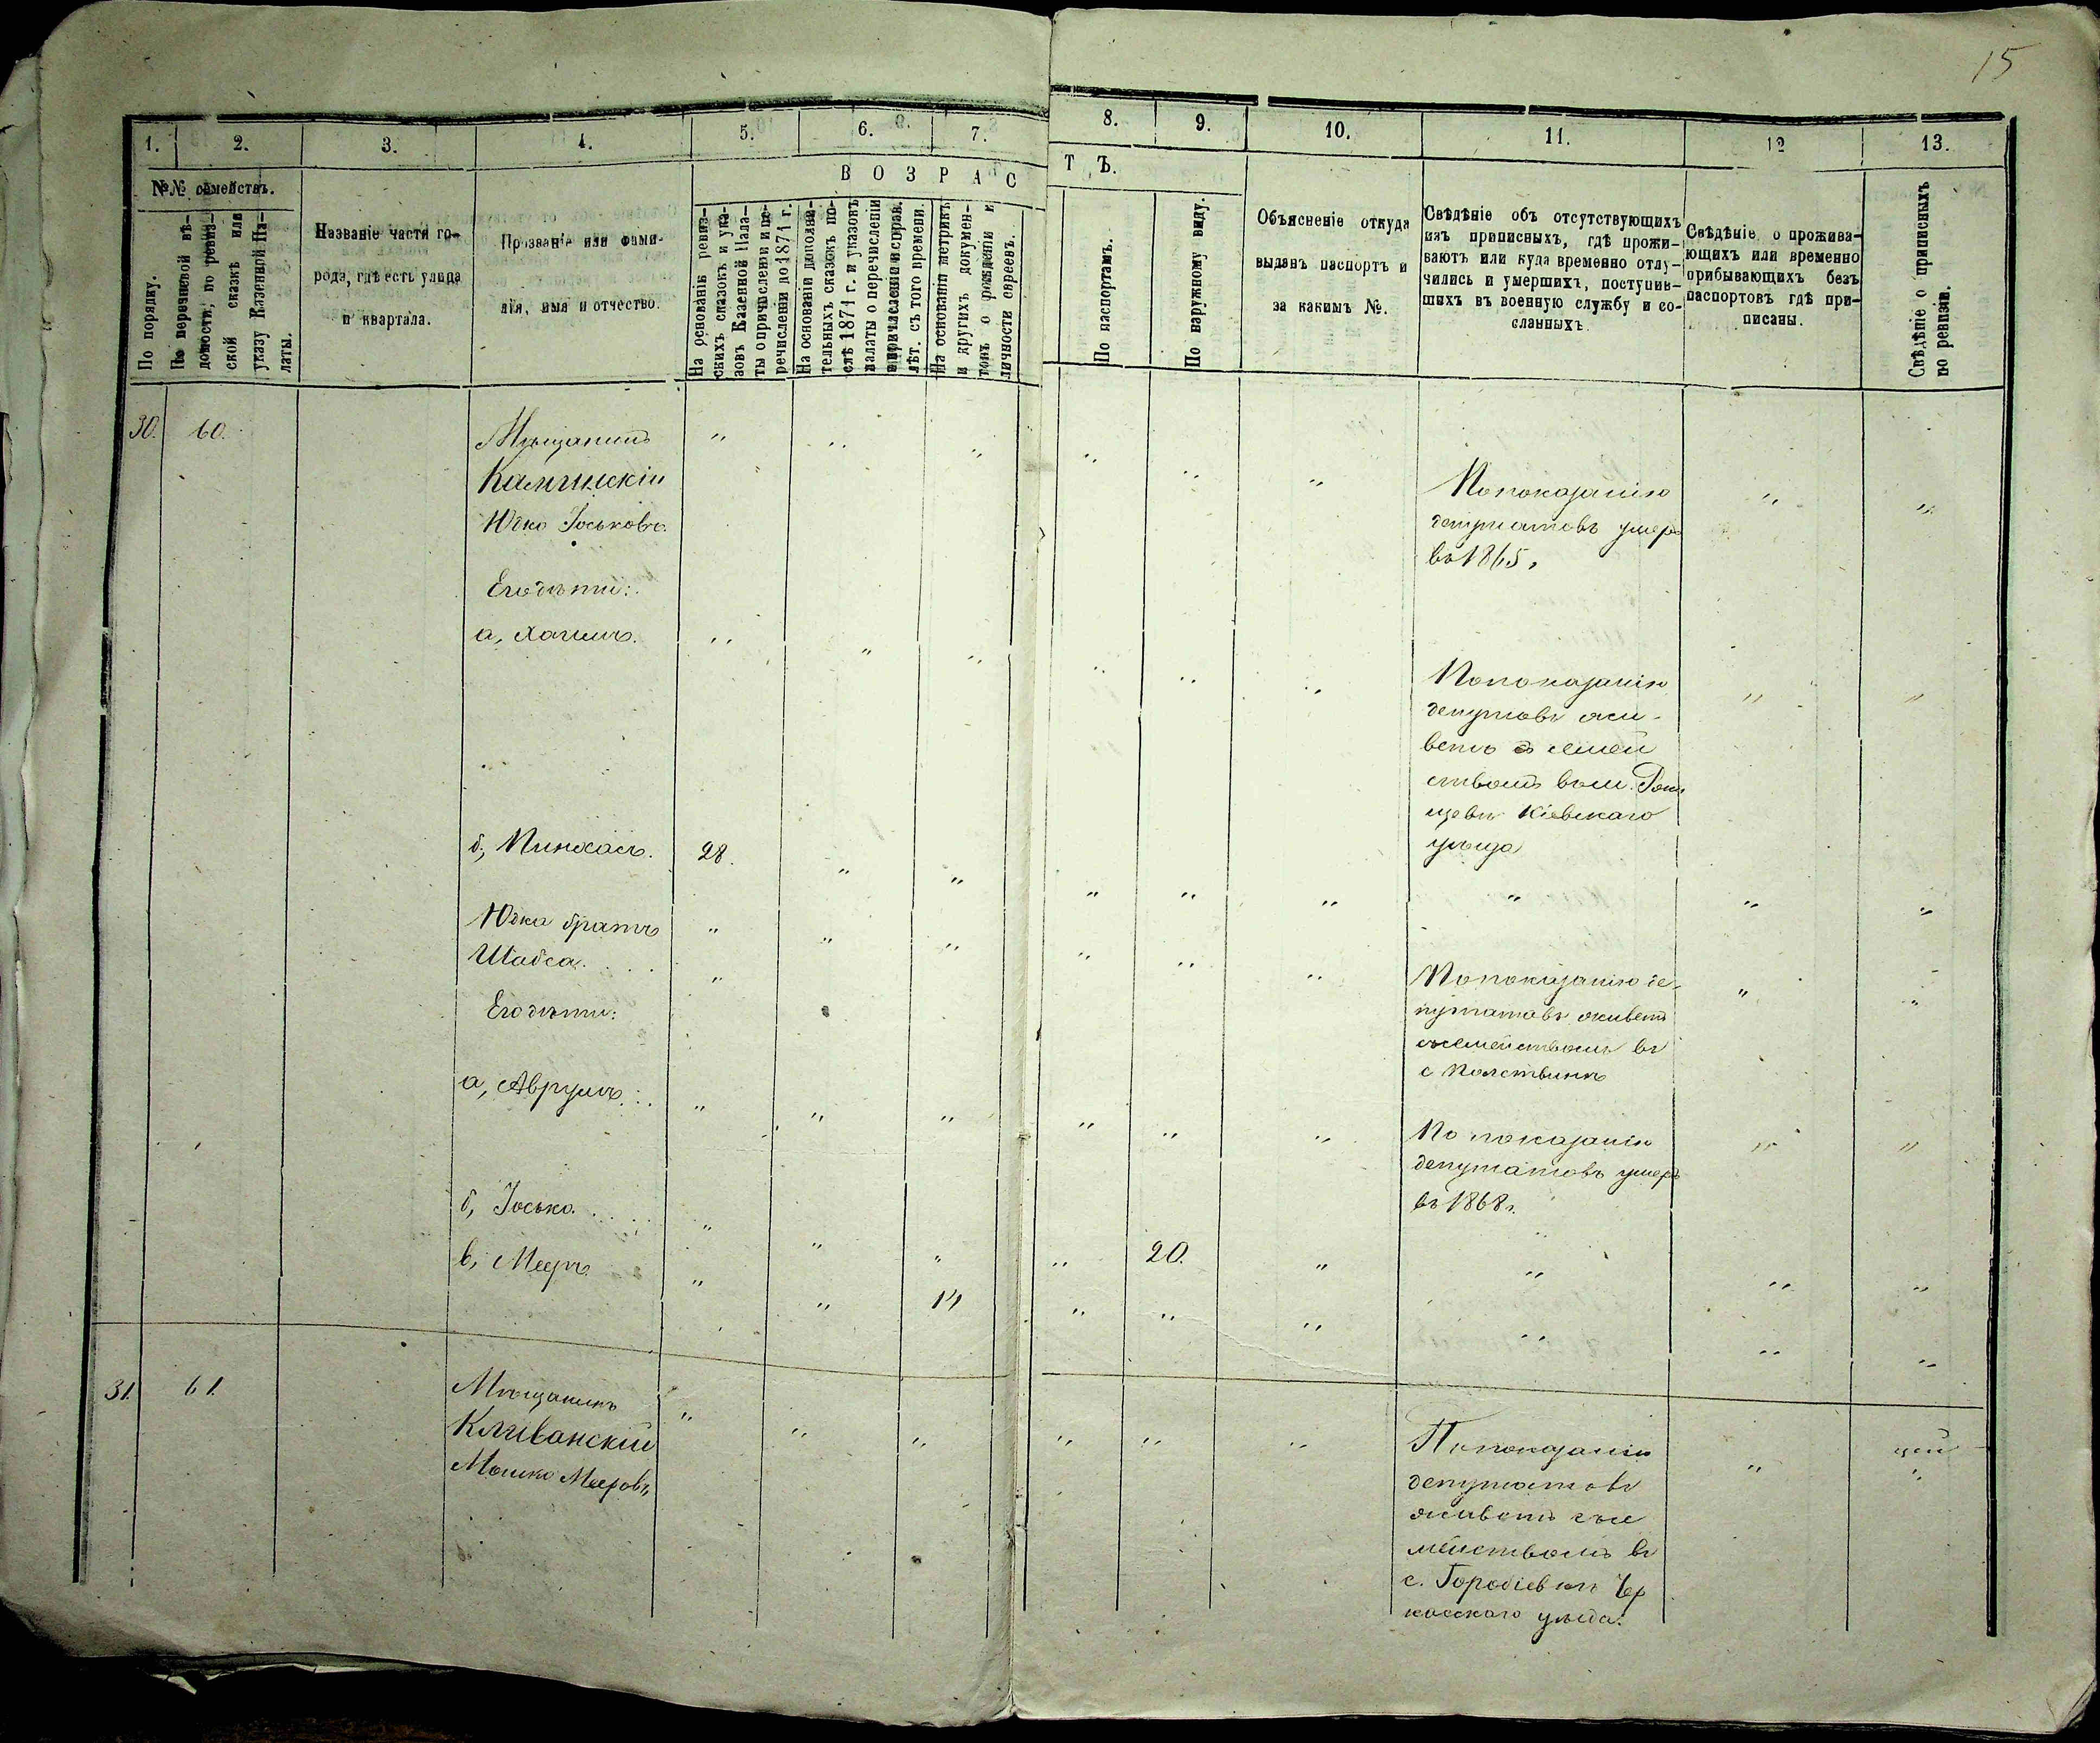 15
1. 2. 3. 4. 5. 6. 7. 8. 9. 10. 11. 12 13.
№№ семействъ.
По порядку.
По перечневой вѣ-
домости, по ревиз-
ской сказкѣ или
указу Казенной Па-
латы.
Названіе части го-
рода, гдѣ есть улица
и квартала.
Прозваніе или фами-
лія, имя и отчество.
ВОЗРАСТЪ.
На основаніи ревиз-
скихъ сказокъ и ука-
зовъ Казенной Пала-
ты о причисленіи и пе-
речисленіи до 1871 г.
На основаніи дополни-
тельныхъ сказокъ по-
слѣ 1871 г. и указовъ
палаты о перечисленіи
лѣт. съ того времени.
На основаніи метрикъ
и другихъ докумен-
товъ о рожденіи и
личности евреевъ.
По паспортамъ.
По наружному виду.
Объясненіе откуда
выданъ паспортъ и
за какимъ №.
Свѣдѣніе объ отсутствующихъ
изъ приписныхъ, гдѣ прожи-
ваютъ или куда временно отлу-
чились и умершихъ, поступив-
шихъ въ военную службу и со-
сланныхъ.
Свѣдѣніе о прожива-
ющихъ или временно
прибывающихъ безъ
паспортовъ гдѣ при-
писаны.
Свѣдѣніе о приписныхъ
по ревизіи.
30. 60. Мѣщанинъ " " " " " " " "
Каминскій
Юдко Іоськовъ.
По показанію
депутатовъ умеръ
въ 1865 г.
Его дѣти:
а, Хаимъ. " " " " " " " "
По показанію
депутовъ жи-
ветъ съ семей
ствомъ въ м.
Кіевскаго
уѣзда
б, Пинхасъ. 28. " " " " " " " "
Юдка братъ " " " " " "
Шабса. "
По показанію де-
путатовъ живетъ
съ семействомъ въ
с
" "
Его дѣти:
а, Аврумъ. " " " " " " " "
По показанію
депутатовъ умеръ
въ 1868 г.
б, Іосько. " " " " 20. " " " "
в, Мееръ. " " 14 " " " " " "
31. 61. Мѣщанинъ " " " " " " " "
Кливанскій
Мошко Мееровъ
По показанію
депутатовъ
живетъ съ се
мействомъ въ
с. Чер
касскаго уѣзда.